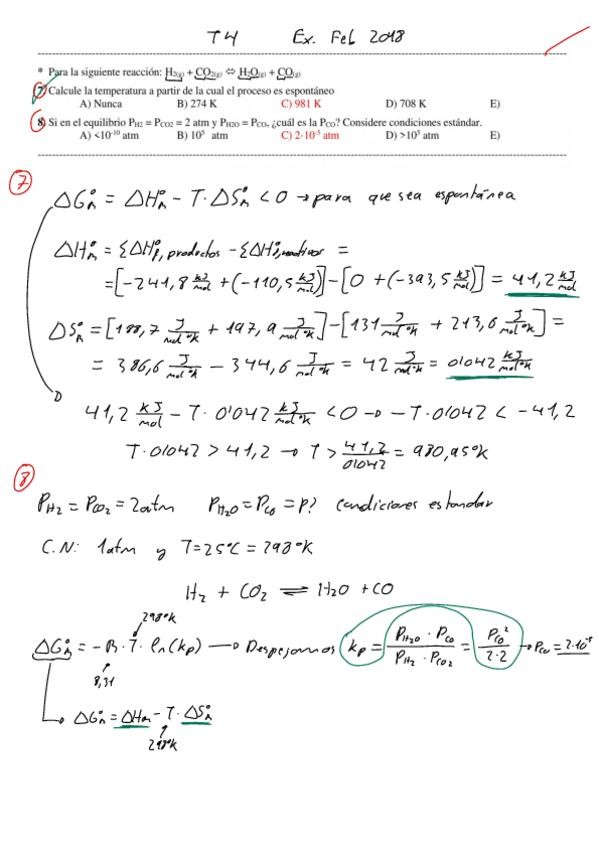 T4 Ex. Feb 2018
* Para la siguiente reacción: H₂(g) + CO₂(g) ⇔ H₂O(g) + CO(g)
7) Calcule la temperatura a partir de la cual el proceso es espontáneo
A) Nunca B) 274 K C) 981 K D) 708 K E)
8) Si en el equilibrio PH2 = PCO2 = 2 atm y PH2O = PCO, ¿cuál es la PCO? Considere condiciones estándar.
A) <10⁻¹⁰ atm B) 10⁵ atm C) 2·10⁻⁵ atm D) >10⁵ atm E)
7
ΔG°n = ΔH°n - T·ΔS°n < 0 → para que sea espontánea
ΔH°n = ΣΔH°f, productos - ΣΔH°f, reactivos =
= [-241,8 kJ/mol + (-110,5 kJ/mol)] - [0 + (-393,5 kJ/mol)] = 41,2 kJ/mol
ΔS°n = [188,7 J/mol°K + 197,9 J/mol°K] - [131 J/mol°K + 213,6 J/mol°K] =
= 386,6 J/mol°K - 344,6 J/mol°K = 42 J/mol°K = 0'042 kJ/mol°K
41,2 kJ/mol - T·0'042 kJ/mol°K < 0 → -T·0'042 < -41,2
T·0'042 > 41,2 → T > 41,2/0'042 = 980,95°K
8
PH2 = PCO2 = 2atm PH2O = PCO = P? Condiciones estandar
C.N: 1atm y T=25°C = 298°K
H₂ + CO₂ ⇌ H₂O + CO
298°K
ΔG°n = -R·T·ln(kp) → Despejamos kp = PH2O · PCO / PH2 · PCO2 = PCO² / 2·2 → PCO = 2·10⁻⁵
8,31
ΔG°n = ΔHn - T·ΔS°n
298°K